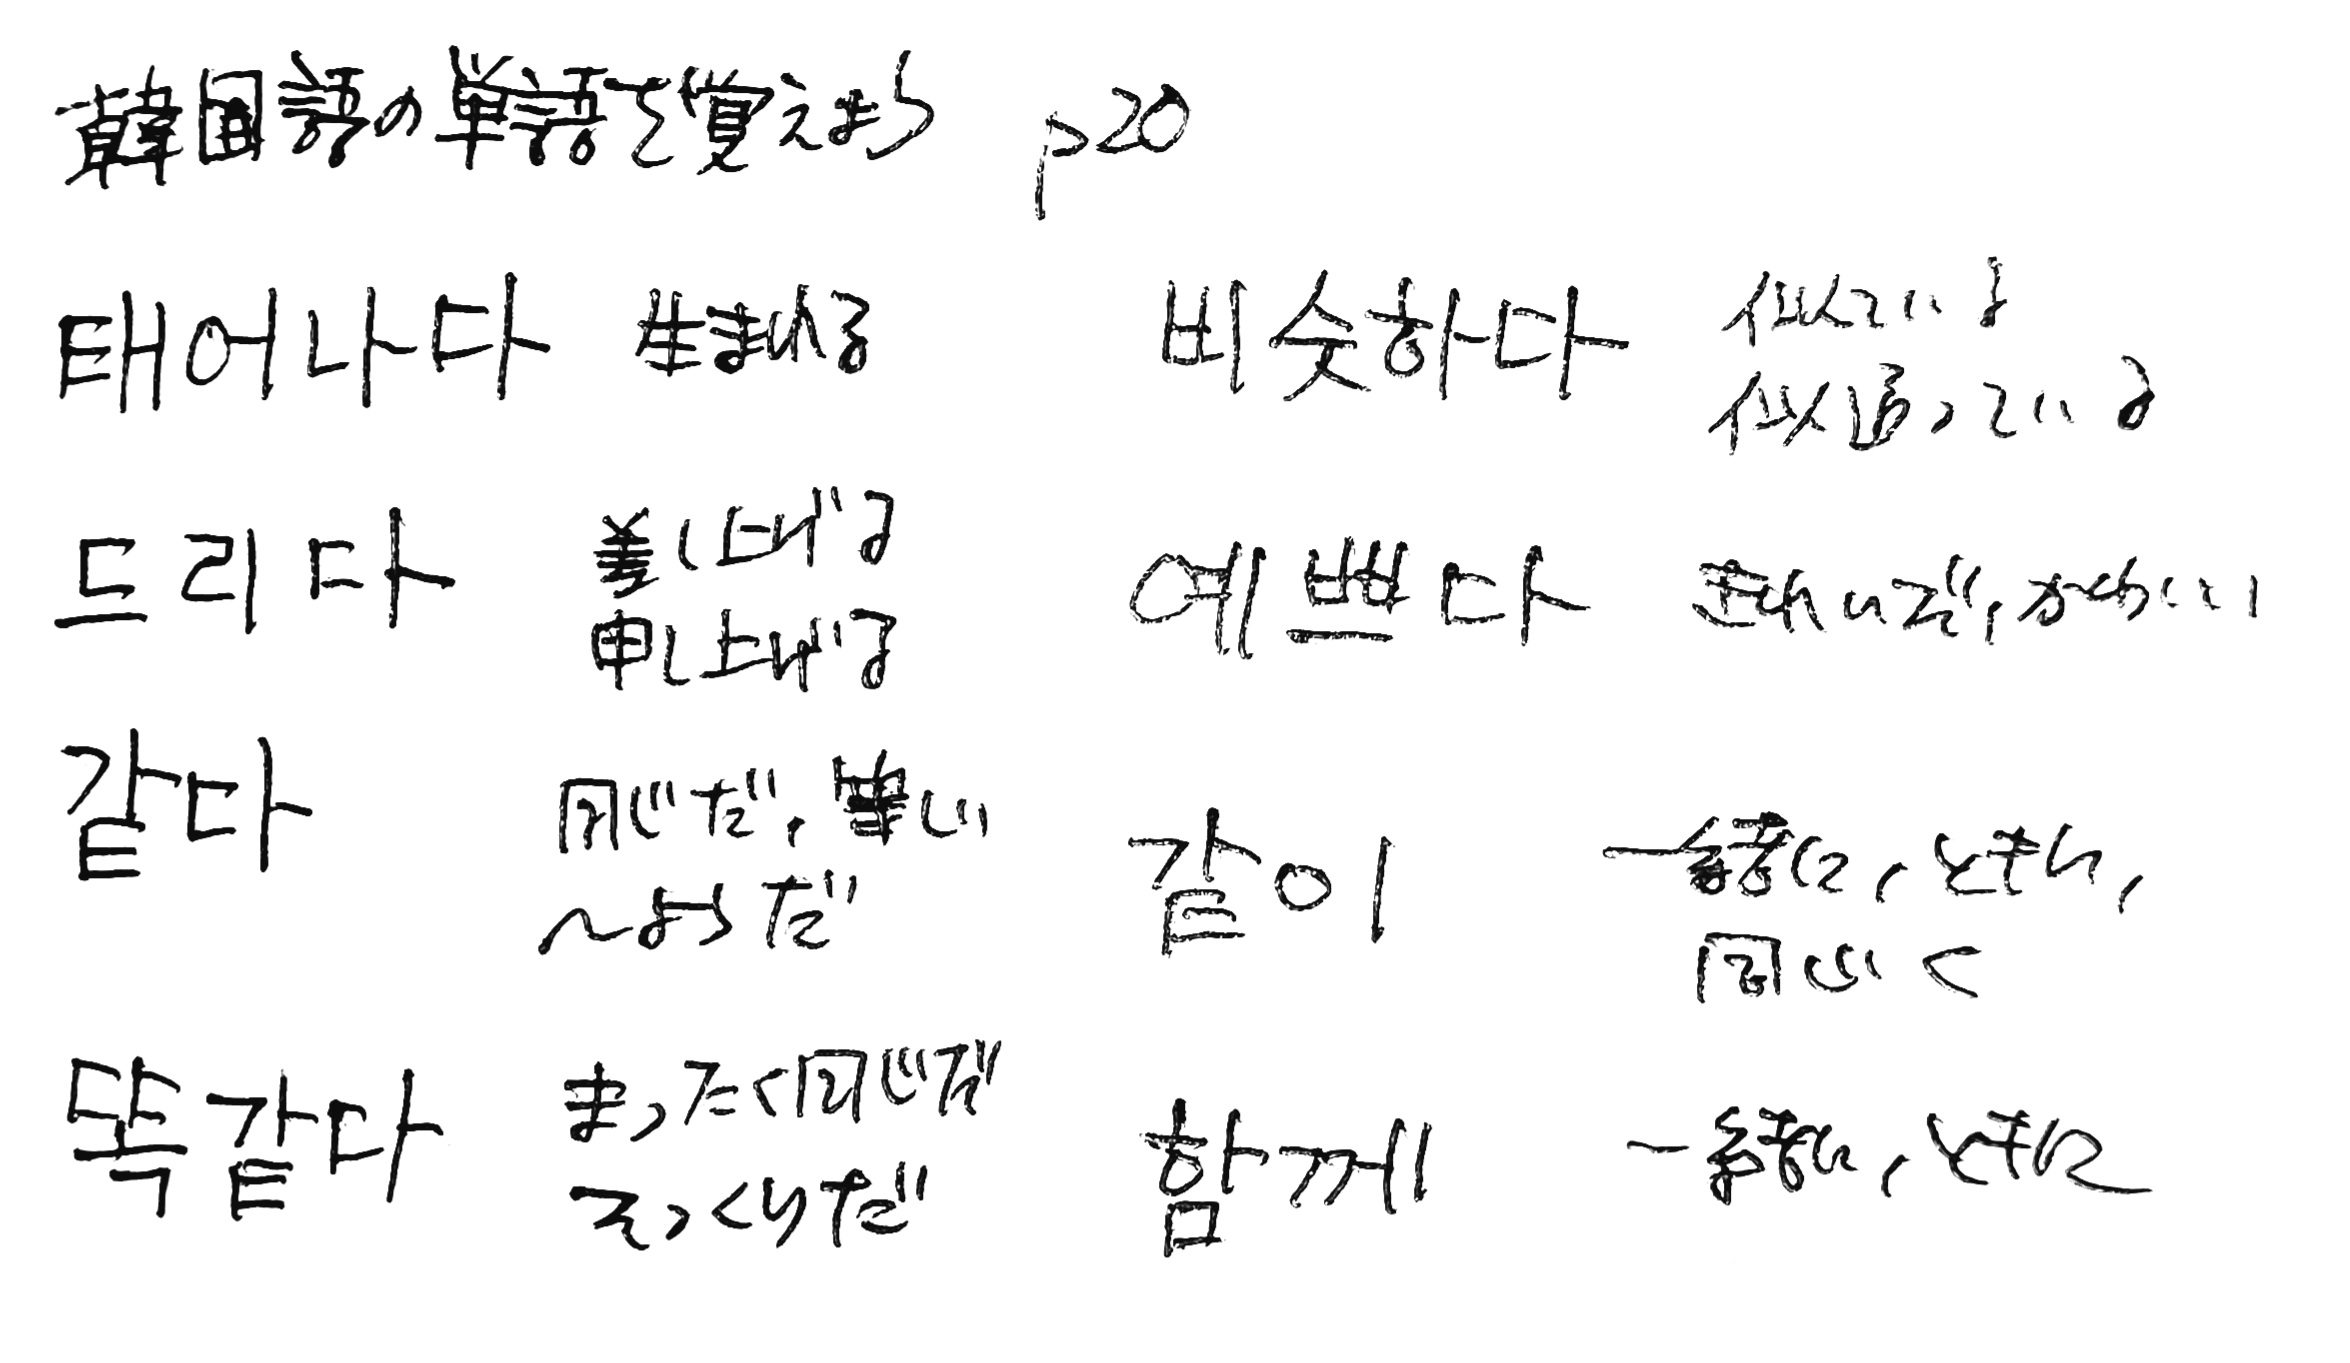 韓国語の単語を覚えよう p20
태어나다 生まれる
드리다 差し上げる
申し上げる
같다 同じだ, 等しい
〜ようだ
똑같다 まったく同じだ
そっくりだ
비슷하다 似ている
似通っている
예쁘다 きれいだ, かわいい
같이 一緒に, ともに,
同じく
함께 一緒に, ともに